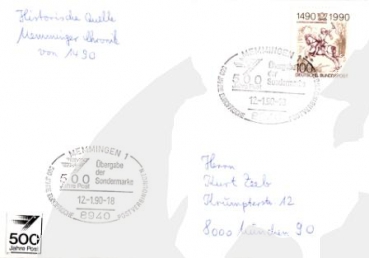 Historische Quelle
Memminger Chronik
von 1490
1490 1990
100
DEUTSCHE BUNDESPOST
MEMMINGEN 1
500
Übergabe
der
Sondermarke
12-1.90-18
8940
MEMMINGEN 1
500
Jahre Post
Übergabe
der
Sondermarke
12-1.90-18
8940
500
Jahre Post
Herrn
Kurt
12
8000 München 90